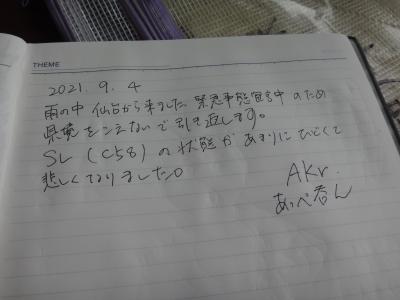 THEME
2021.9.4
雨の中 仙台から来ました 緊急事態宣言中のため
県境をこえないで引き返します。
SL (C58) の状態があまりにひどくて
悲しくなりました。
AKr.
あっぺ呑ん